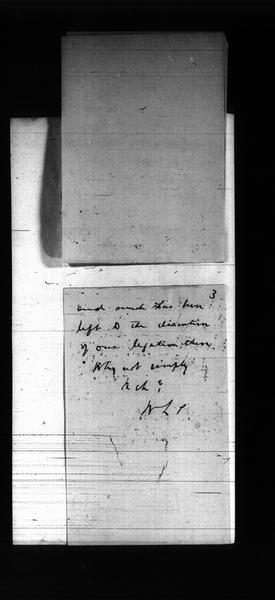 3
and much has been
left to the discretion
of our legation there
Why not simply